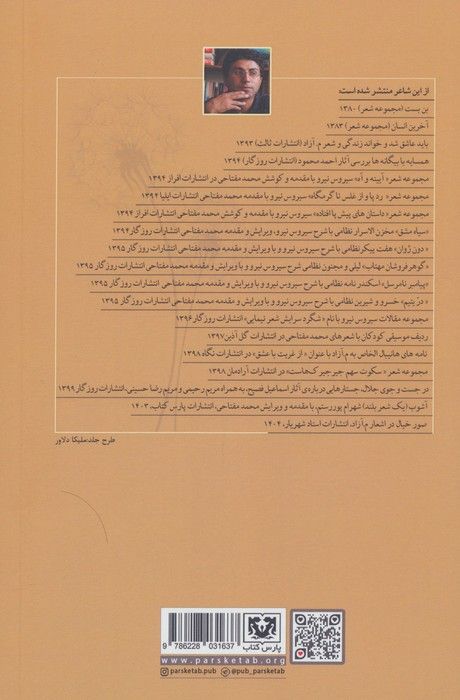 از این شاعر منتشر شده است:
بن بست (مجموعه شعر) ۱۳۸۰
آخرین انسان (مجموعه شعر) ۱۳۸۳
باید عاشق شد و خواند زندگی و شعر م. آزاد (انتشارات ثالث) ۱۳۹۳
همسایه با بیگانه ها بررسی آثار احمد محمود (انتشارات روزگار) ۱۳۹۴
مجموعه شعر « آیینه و آه» سیروس نیرو با مقدمه و کوشش محمد مفتاحی در انتشارات افراز ۱۳۹۴
مجموعه شعر « رد پا و از غلس تا گرمگاه» سیروس نیرو با مقدمه محمد مفتاحی انتشارات ایلیا ۱۳۹۴
مجموعه شعر « داستان های پیش پا افتاده» سیروس نیرو با مقدمه و کوشش محمد مفتاحی انتشارات افراز ۱۳۹۴
«سیاه مشق» مخزن الاسرار نظامی با شرح سیروس نیرو، ویرایش و مقدمه محمد مفتاحی انتشارات روزگار ۱۳۹۴
« دون ژوان» هفت پیکر نظامی با شرح سیروس نیرو و با ویرایش و مقدمه محمد مفتاحی انتشارات روزگار ۱۳۹۵
«گوهرفروشان مهتاب» لیلی و مجنون نظامی شرح سیروس نیرو و با ویرایش و مقدمه محمد مفتاحی انتشارات روزگار ۱۳۹۵
«پیامبر نامرسل» اسکندر نامه نظامی با شرح سیروس نیرو و با ویرایش و مقدمه محمد مفتاحی انتشارات روزگار ۱۳۹۵
« در یتیم» خسرو و شیرین نظامی با شرح سیروس نیرو و با ویرایش و مقدمه محمد مفتاحی انتشارات روزگار ۱۳۹۵
مجموعه مقالات سیروس نیرو با نام « شگرد سرایش شعر نیمایی» انتشارات روزگار ۱۳۹۶
ردیف موسیقی کودکان با شعرهای محمد مفتاحی در انتشارات گل آذین ۱۳۹۷
نامه های هانیبال الخاص به م. آزاد با عنوان « از غربت با عشق» در انتشارات نگاه ۱۳۹۸
مجموعه شعر « سکوت سهم جیرجیرک‌هاست» در انتشارات آرادمان ۱۳۹۸
در جست و جوی جلال، جستارهایی درباره‌ی آثار اسماعیل فصیح، به همراه مریم رحیمی و مریم رضا حسینی، انتشارات روزگار ۱۳۹۹
آشوب (یک شعر بلند) شهرام پوررستم، با مقدمه و ویرایش محمد مفتاحی، انتشارات پارس کتاب، ۱۴۰۳
صور خیال در اشعار م. آزاد، انتشارات استاد شهریار، ۱۴۰۴
طرح جلد: ملیکا دلاور
9 786228 031637
پارس کتاب
www.parsketab.org
parsketab.pub @pub_parsketab